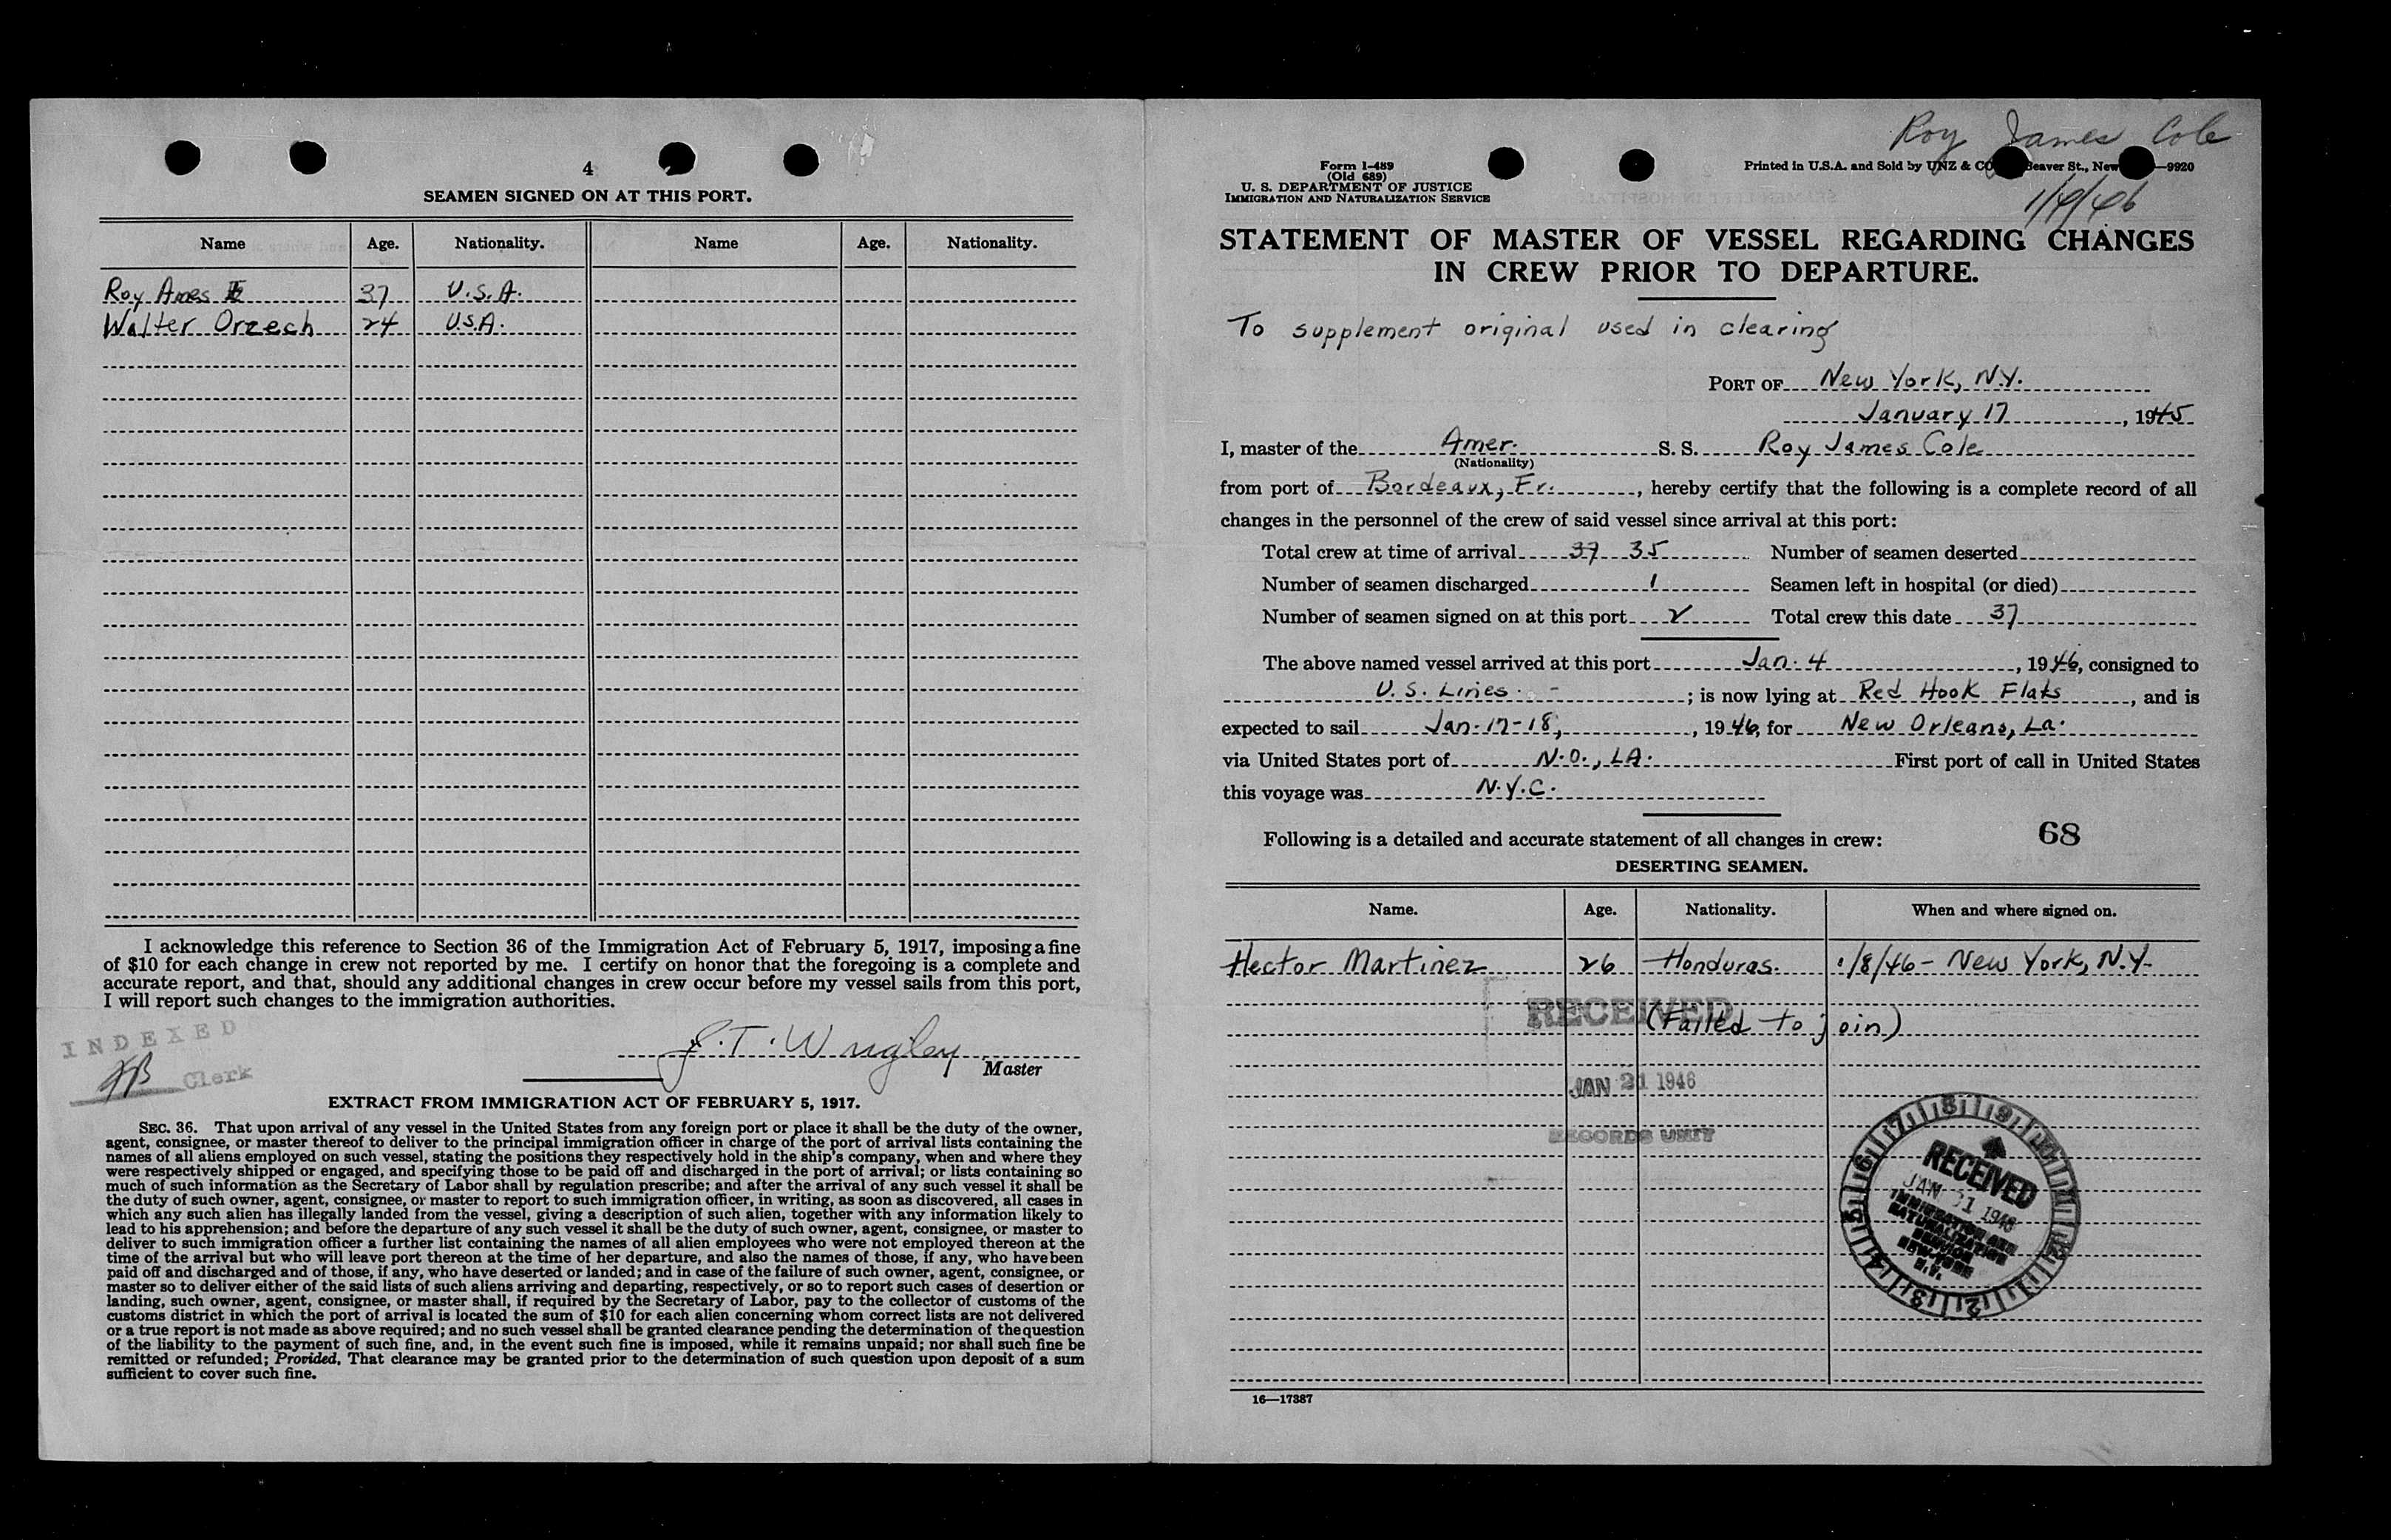 4
SEAMEN SIGNED ON AT THIS PORT.
Name Age. Nationality. Name Age. Nationality.
Roy Ames 37 U.S.A.
Walter Orzech 24 U.S.A.
I acknowledge this reference to Section 36 of the Immigration Act of February 5, 1917, imposing a fine
of $10 for each change in crew not reported by me. I certify on honor that the foregoing is a complete and
accurate report, and that, should any additional changes in crew occur before my vessel sails from this port,
I will report such changes to the immigration authorities.
INDEXED
Clerk
J. T. Wrigley
Master
EXTRACT FROM IMMIGRATION ACT OF FEBRUARY 5, 1917.
SEC. 36. That upon arrival of any vessel in the United States from any foreign port or place it shall be the duty of the owner,
agent, consignee, or master thereof to deliver to the principal immigration officer in charge of the port of arrival lists containing the
names of all aliens employed on such vessel, stating the positions they respectively hold in the ship's company, when and where they
were respectively shipped or engaged, and specifying those to be paid off and discharged in the port of arrival; or lists containing so
much of such information as the Secretary of Labor shall by regulation prescribe; and after the arrival of any such vessel it shall be
the duty of such owner, agent, consignee, or master to report to such immigration officer, in writing, as soon as discovered, all cases in
which any such alien has illegally landed from the vessel, giving a description of such alien, together with any information likely to
lead to his apprehension; and before the departure of any such vessel it shall be the duty of such owner, agent, consignee, or master to
deliver to such immigration officer a further list containing the names of all alien employees who were not employed thereon at the
time of the arrival but who will leave port thereon at the time of her departure, and also the names of those, if any, who have been
paid off and discharged and of those, if any, who have deserted or landed; and in case of the failure of such owner, agent, consignee, or
master so to deliver either of the said lists of such aliens arriving and departing, respectively, or so to report such cases of desertion or
landing, such owner, agent, consignee, or master shall, if required by the Secretary of Labor, pay to the collector of customs of the
customs district in which the port of arrival is located the sum of $10 for each alien concerning whom correct lists are not delivered
or a true report is not made as above required; and no such vessel shall be granted clearance pending the determination of the question
of the liability to the payment of such fine, and, in the event such fine is imposed, while it remains unpaid; nor shall such fine be
remitted or refunded; Provided, That clearance may be granted prior to the determination of such question upon deposit of a sum
sufficient to cover such fine.
Roy James Cole
Form I-489
(Old 689)
U. S. DEPARTMENT OF JUSTICE
IMMIGRATION AND NATURALIZATION SERVICE
Printed in U.S.A. and Sold by UNZ & CO Beaver St., New —9920
STATEMENT OF MASTER OF VESSEL REGARDING CHANGES
IN CREW PRIOR TO DEPARTURE.
To supplement original used in clearing
PORT OF New York, N.Y.
January 17, 1945
I, master of the Amer. S. S. Roy James Cole
(Nationality)
from port of Bordeaux, Fr., hereby certify that the following is a complete record of all
changes in the personnel of the crew of said vessel since arrival at this port:
Total crew at time of arrival 37 35 Number of seamen deserted
Number of seamen discharged 1 Seamen left in hospital (or died)
Number of seamen signed on at this port 2 Total crew this date 37
The above named vessel arrived at this port Jan. 4, 1946, consigned to
U. S. Lines. - ; is now lying at Red Hook Flats, and is
expected to sail Jan. 17-18, 1946, for New Orleans, La.
via United States port of N.O., LA. First port of call in United States
this voyage was N.Y.C.
Following is a detailed and accurate statement of all changes in crew: 68
DESERTING SEAMEN.
Name. Age. Nationality. When and where signed on.
Hector Martinez 26 Honduras. 1/8/46 - New York, N.Y.
RECEIVED
(Failed to join)
JAN 21 1946
RECORDS UNIT
RECEIVED
IMMIGRATION AND
NATURALIZATION
SERVICE
NEW YORK
N.Y.
16—17387